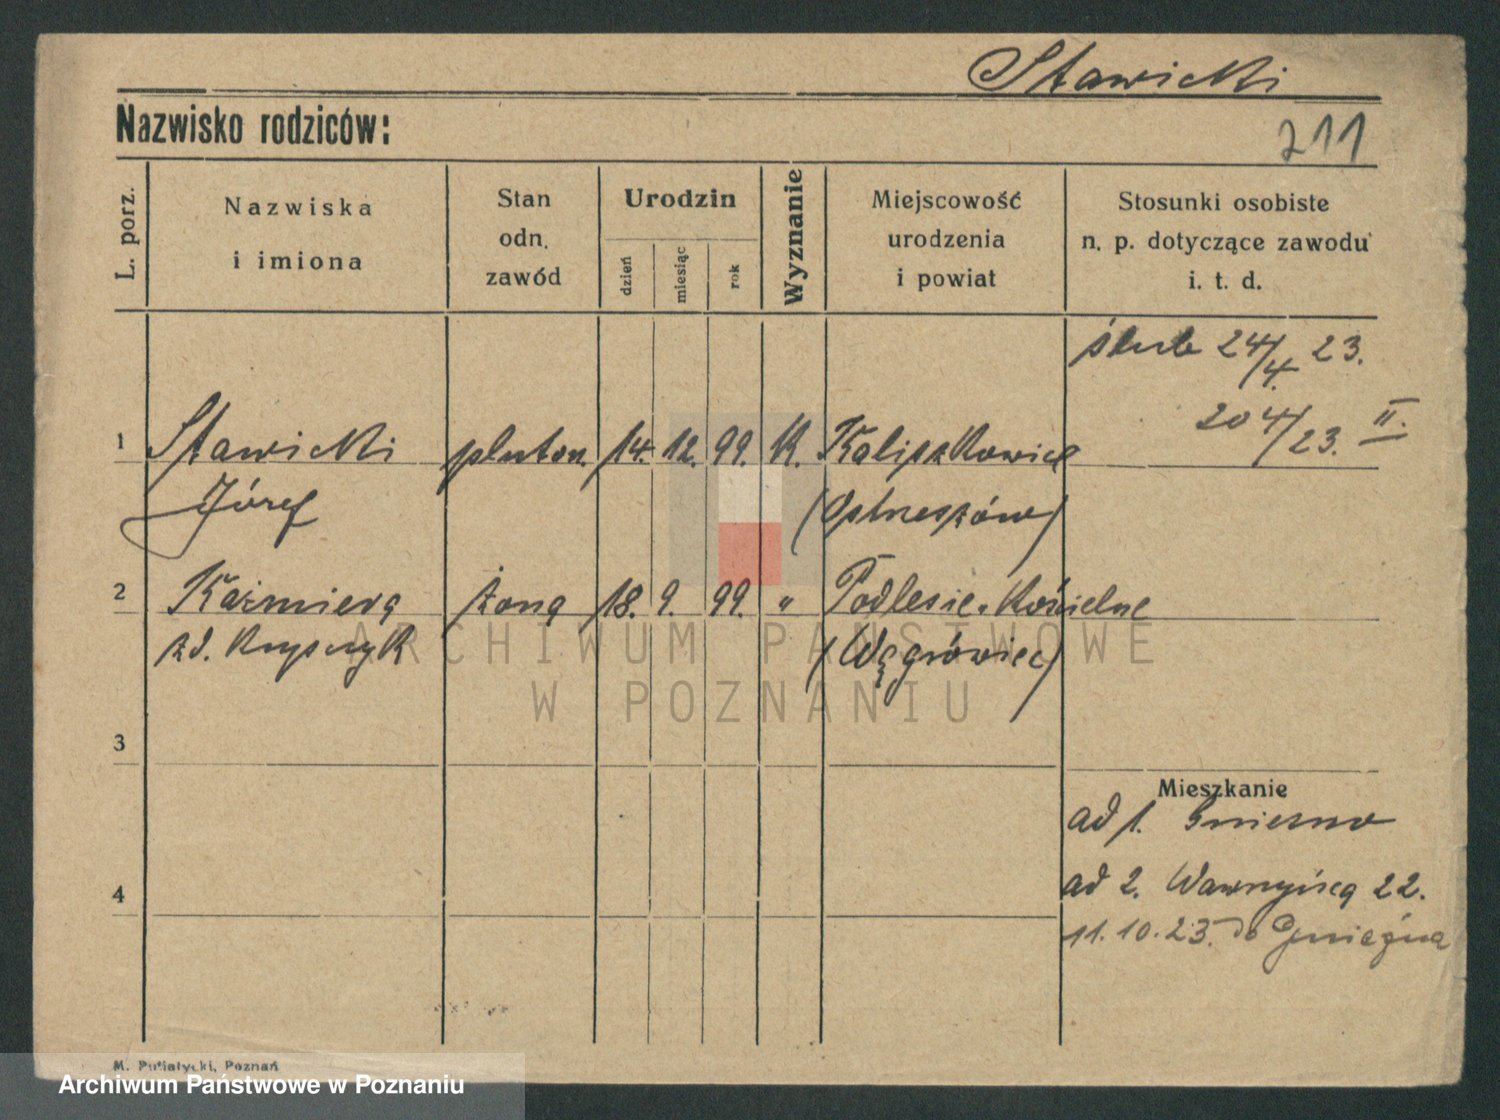 Stawicki
Nazwisko rodziców:
211
L. porz.
Nazwiska
i imiona
Stan
odn.
zawód
Urodzin
dzień
miesiąc
rok
Wyznanie
Miejscowość
urodzenia
i powiat
Stosunki osobiste
n. p. dotyczące zawodu
i. t. d.
ślub 24/4. 23.
204/23. II.
1 Stawicki pluton. 14. 12. 99. K. Kaliszkowice
Józef (Ostrzeszów)
2 Kaźmiera żona 18. 9. 99. " Podlesie-Kościelne
zd. (Wągrówiec)
3
Mieszkanie
ad 1. Gniezno
4
ad 2. Wawrzyńca 22.
11.10.23. do Gniezna
ARCHIWUM PAŃSTWOWE
W POZNANIU
M. Putiatycki, Poznań
Archiwum Państwowe w Poznaniu